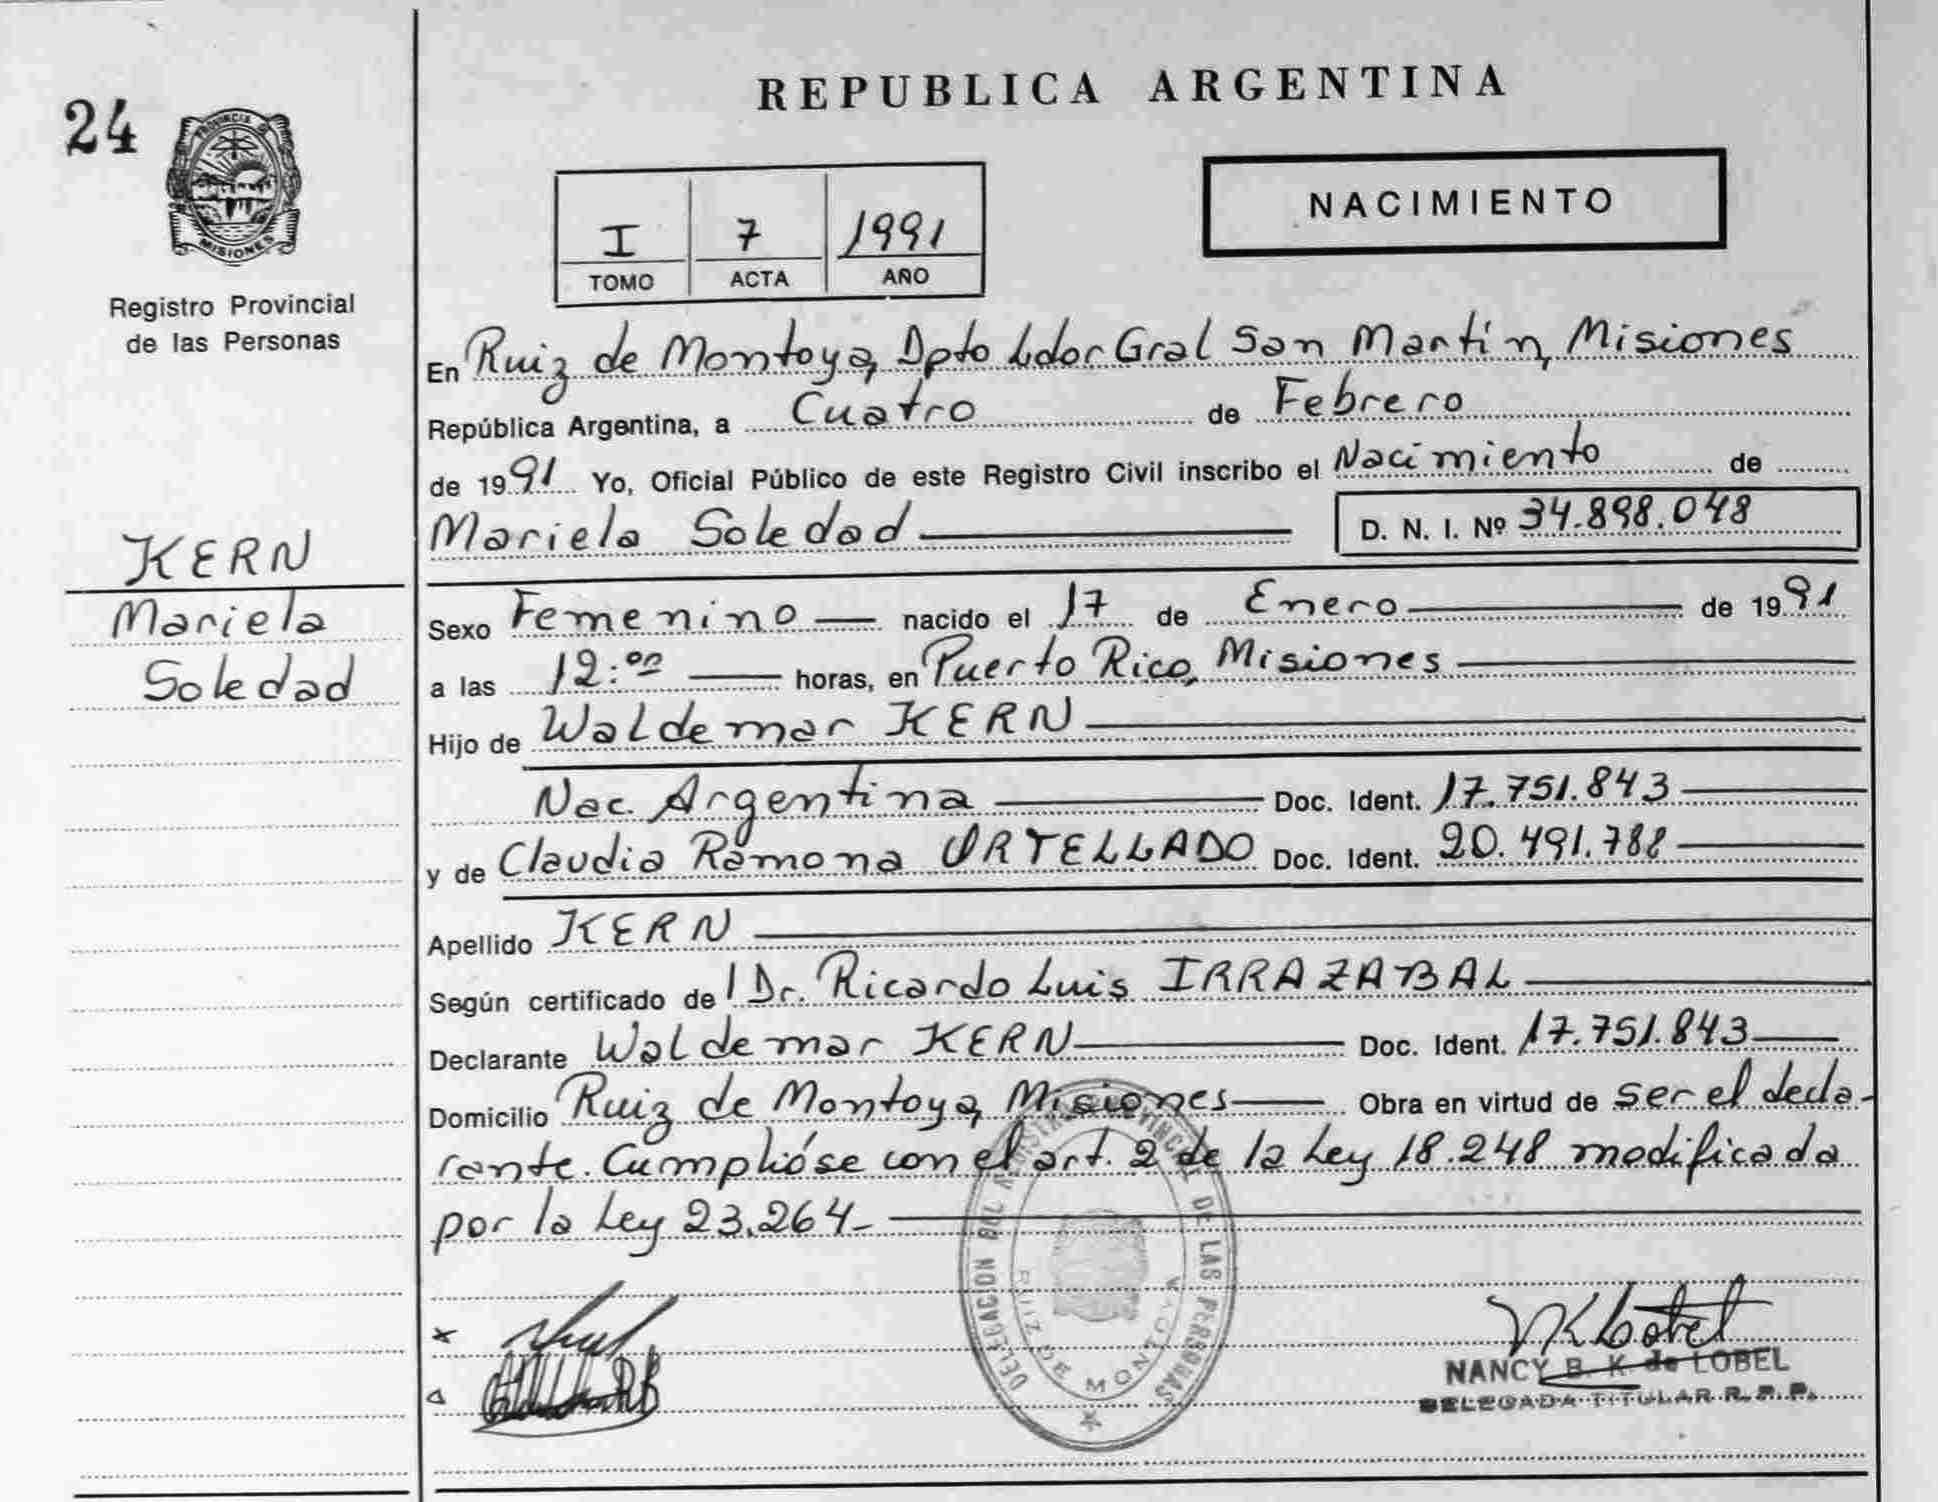 REPUBLICA ARGENTINA
24
PROVINCIA DE
MISIONES
Registro Provincial
de las Personas
NACIMIENTO
I 7 1991
TOMO ACTA AÑO
En Ruiz de Montoya, Dpto Ldor Gral San Martín, Misiones
República Argentina, a Cuatro de Febrero
de 1991 Yo, Oficial Público de este Registro Civil inscribo el Nacimiento de
Mariela Soledad D. N. I. Nº 34.898.048
KERN
Mariela
Soledad
Sexo Femenino nacido el 17 de Enero de 1991
a las 12:00 horas, en Puerto Rico, Misiones
Hijo de Waldemar KERN
Nac. Argentina Doc. Ident. 17.751.843
y de Claudia Ramona ORTELLADO Doc. Ident. 20.491.788
Apellido KERN
Según certificado de l Dr. Ricardo Luis IRRAZABAL
Declarante Waldemar KERN Doc. Ident. 17.751.843
Domicilio Ruiz de Montoya, Misiones Obra en virtud de ser el decla-
rante. Cumplióse con el art. 2 de la Ley 18.248 modificada
por la Ley 23.264-
DELEGACION DEL REGISTRO PROVINCIAL DE LAS PERSONAS
RUIZ DE MONTOYA
NANCY B. K. de LOBEL
DELEGADA TITULAR R. P. P.